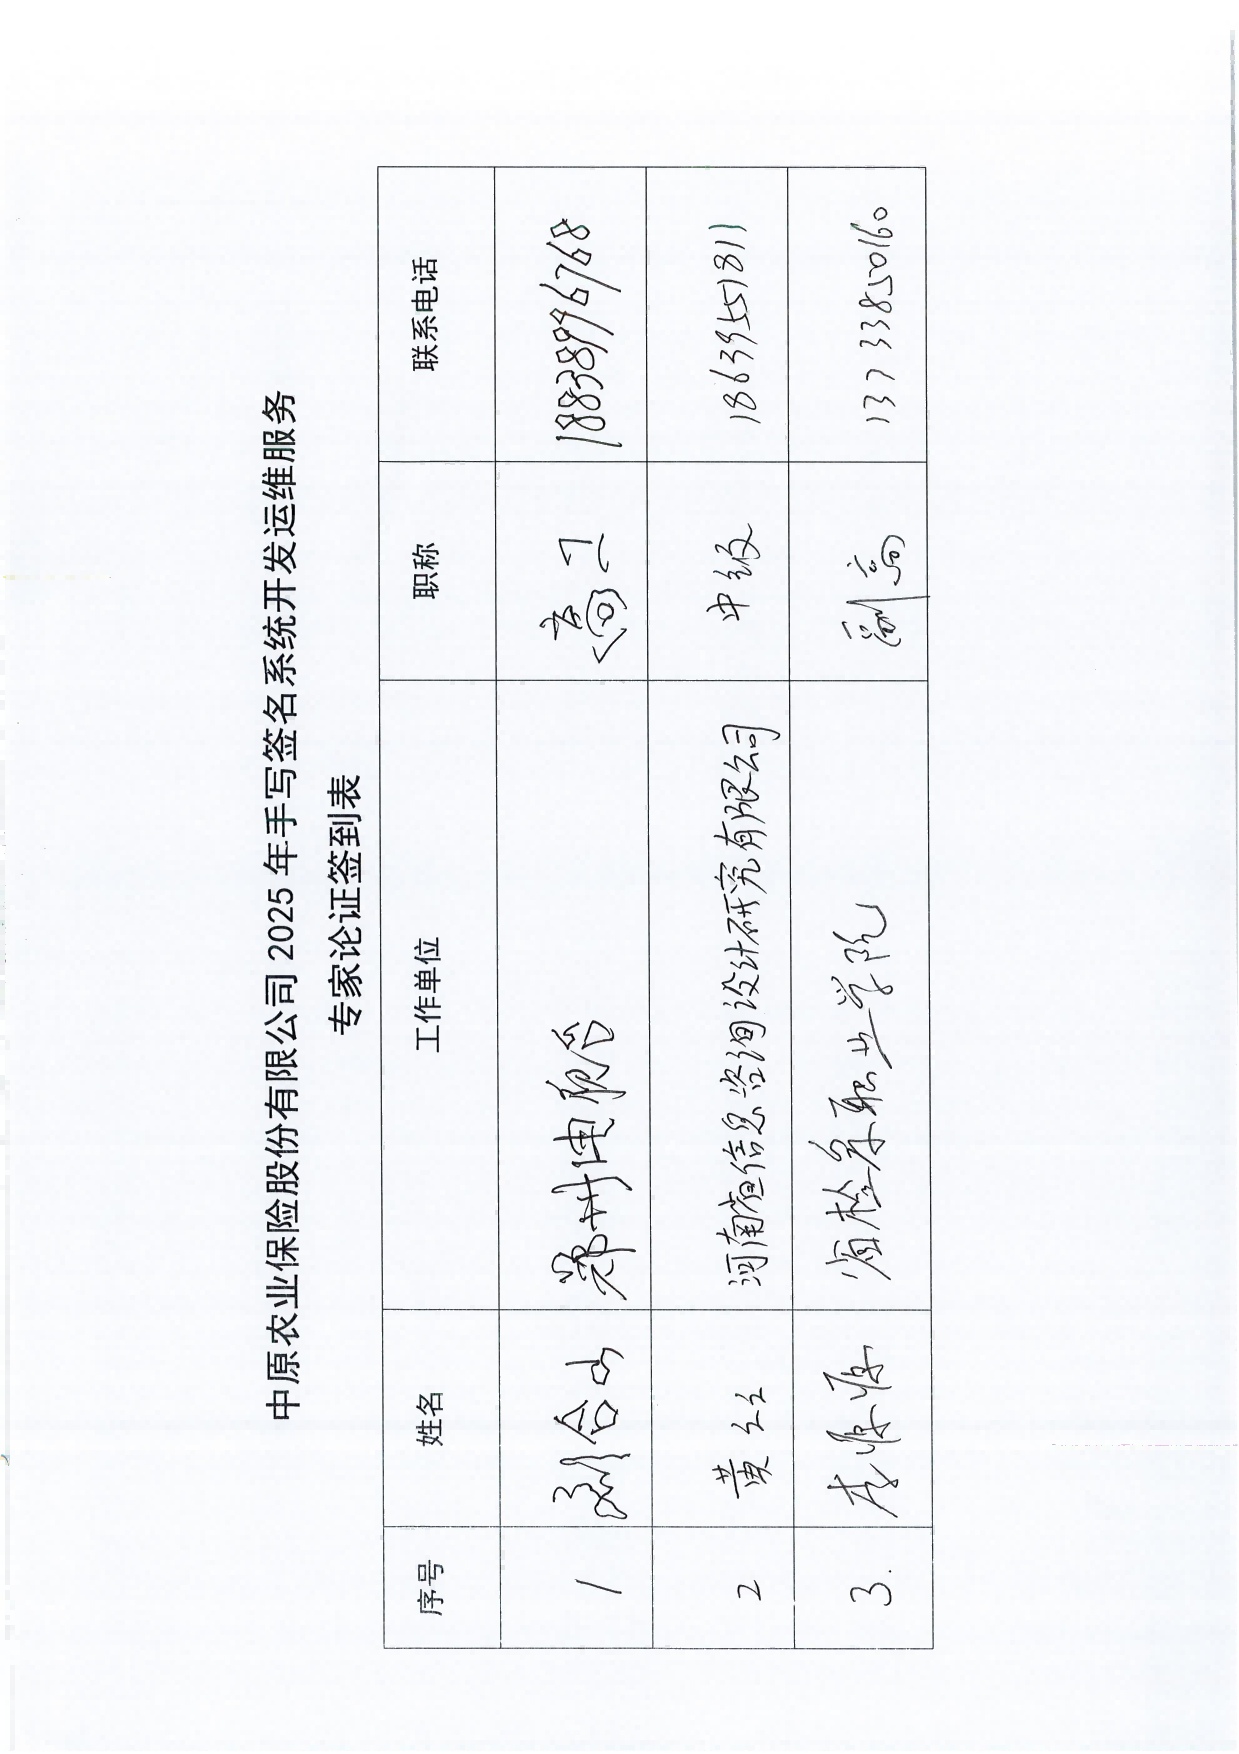 中原农业保险股份有限公司2025年手写签名系统开发运维服务
专家论证签到表
序号 姓名 工作单位 职称 联系电话
1 合山 郑州电视台 高工 18838996768
2 黄红 河南省信息咨询设计研究有限公司 中级 18639551311
3. 李顺源 省检察职业学院 副高 13733850160